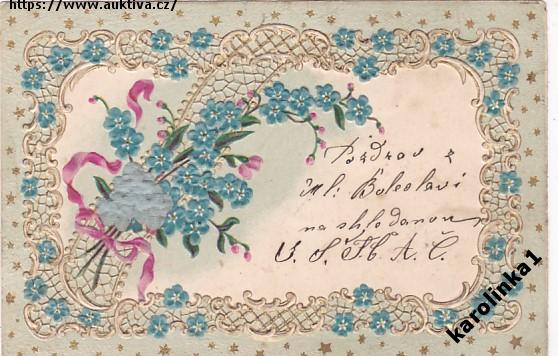 https://www.auktiva.cz/
Pozdrav z
Ml. Boleslavi
na shledanou
karolinka1